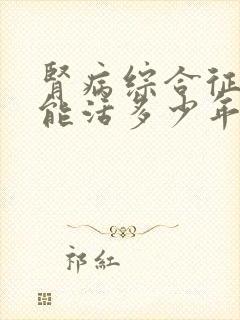 肾病综合征
能活多少年
祁红